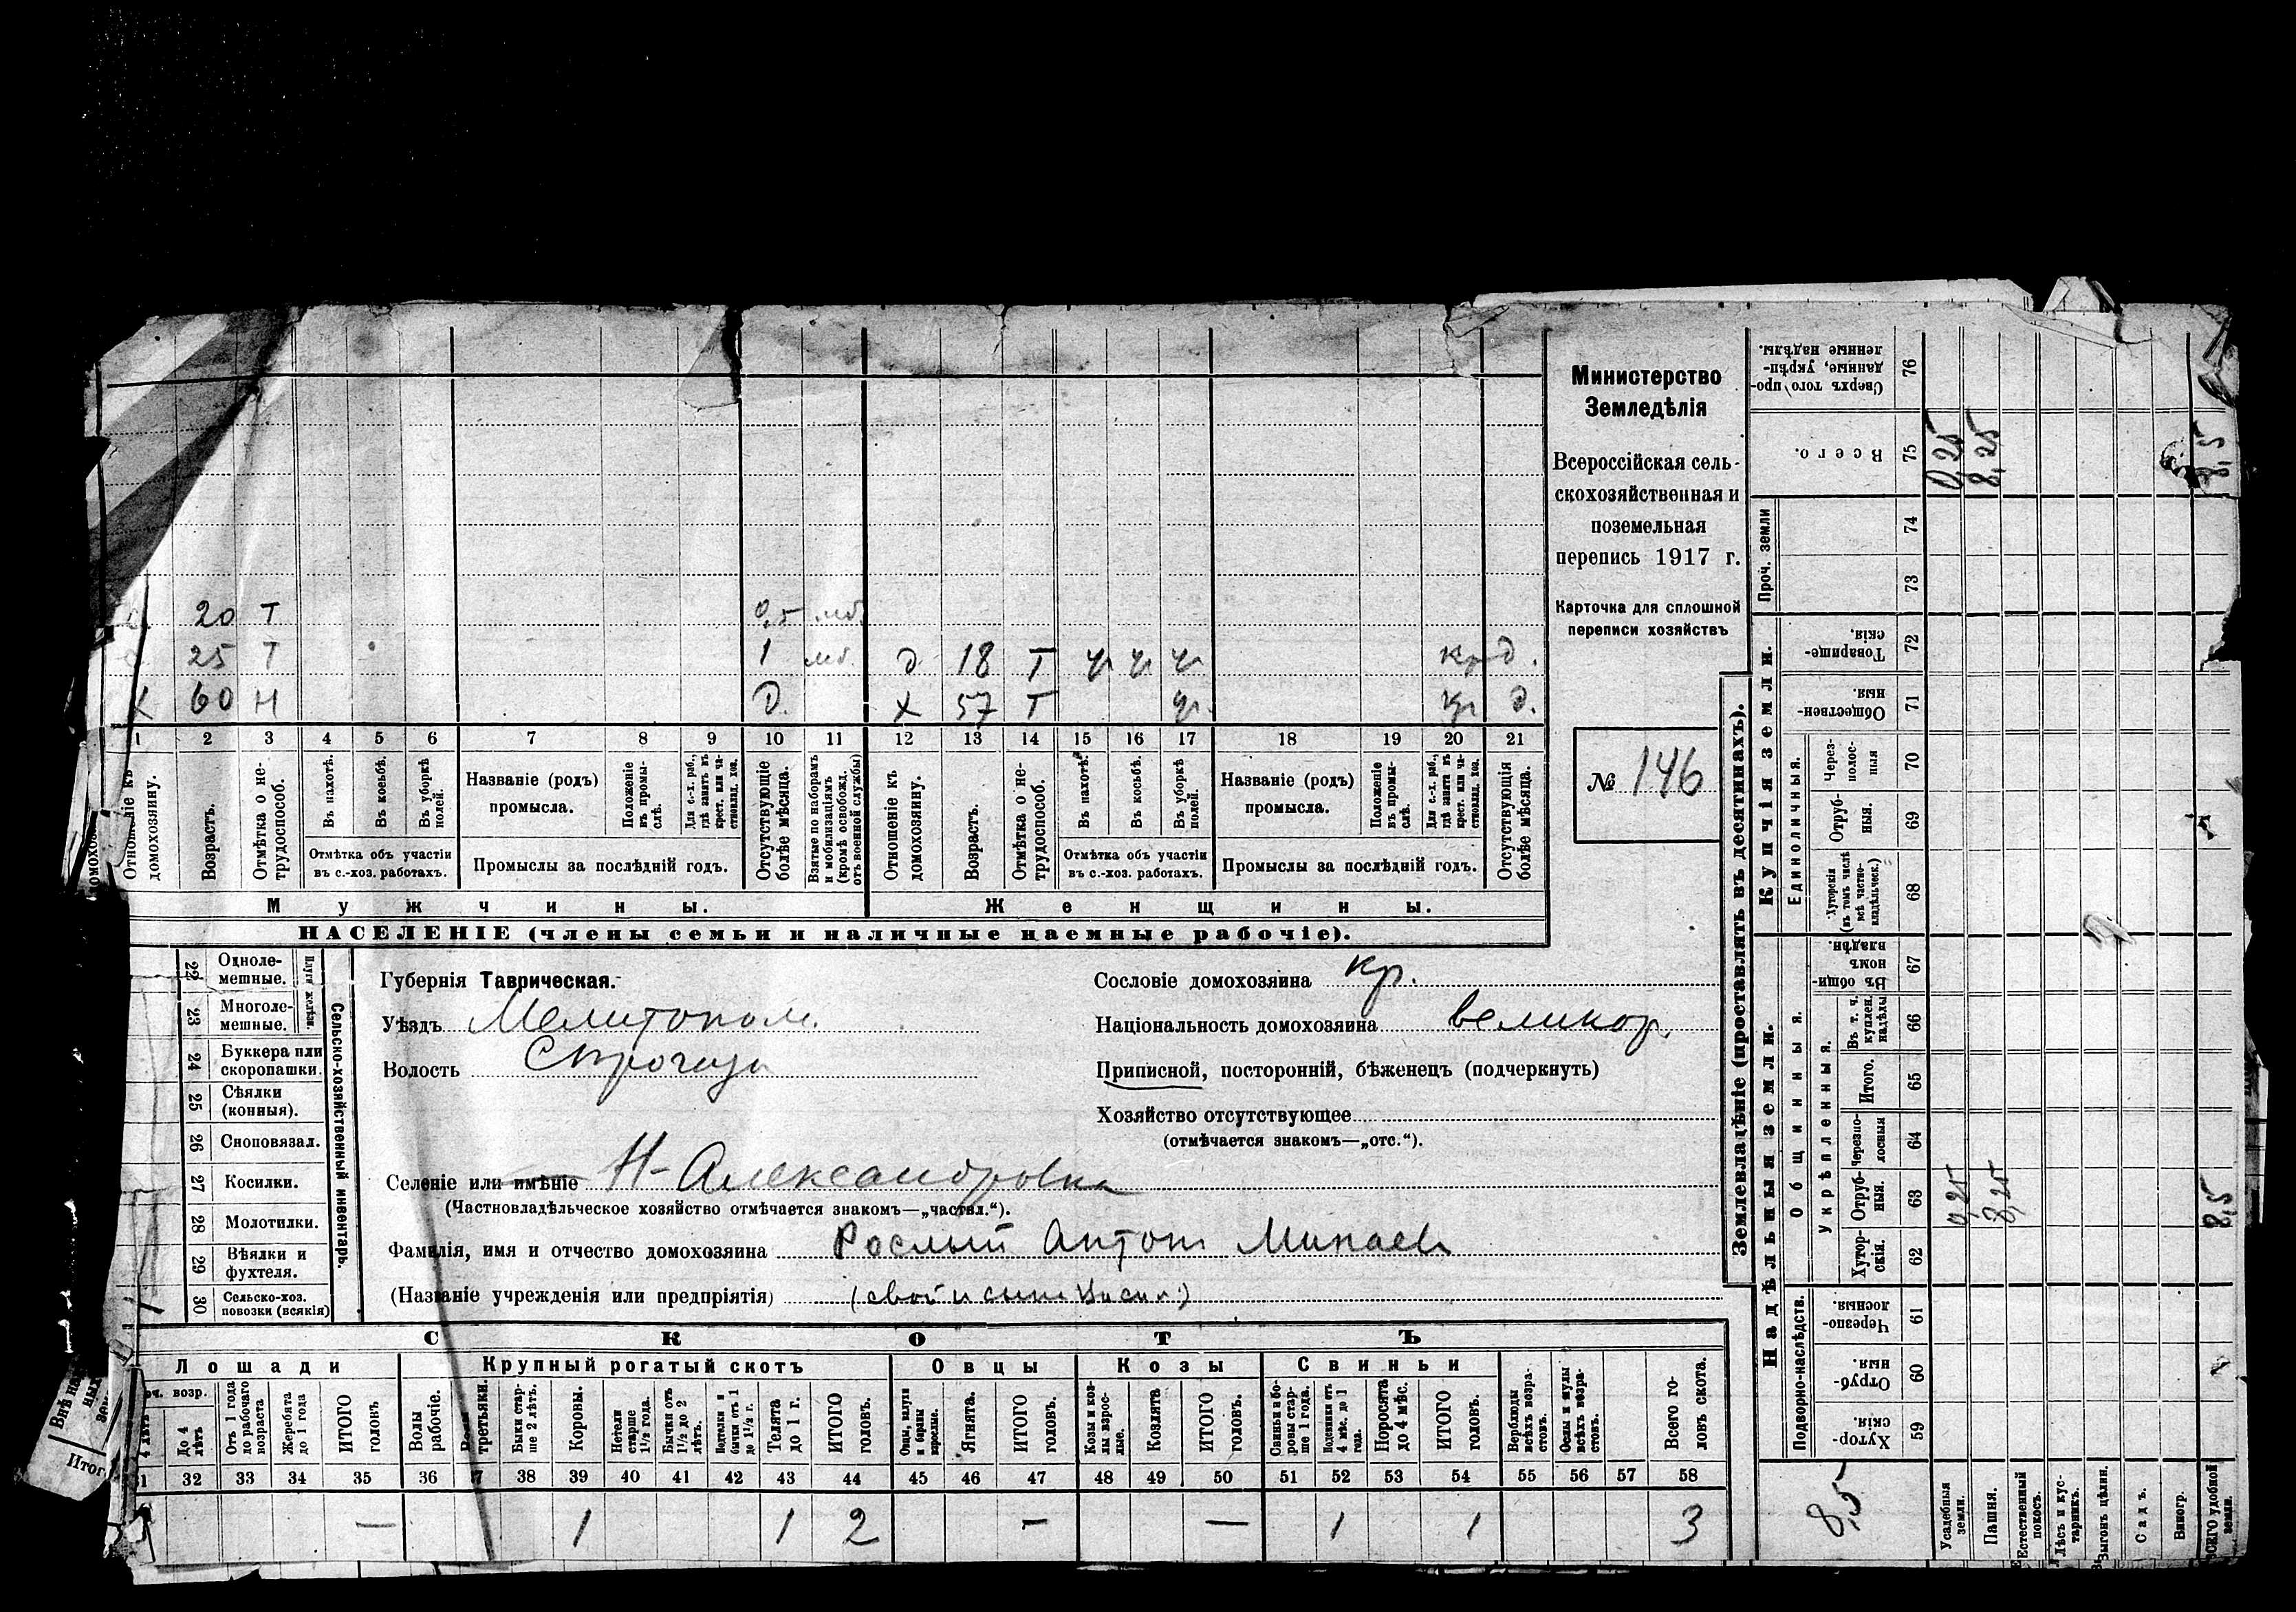 Министерство
Земледѣлія
Всероссійская сель-
скохозяйственная и
поземельная
перепись 1917 г.
Карточка для сплошной
переписи хозяйствъ
№ 146
20 Т 0,5 мб.
25 Т 1 мб. д 18 Т ч ч ч кр д.
х 60 Н д. х 57 Т кр д.
1 2 3 4 5 6 7 8 9 10 11 12 13 14 15 16 17 18 19 20 21
Отношеніе къ домохозяину.
Возрастъ.
Отмѣтка о не-трудоспособ.
Въ пахотѣ.
Въ косьбѣ.
Въ уборкѣ полей.
Отмѣтка объ участіи
въ с.-хоз. работахъ.
Названіе (родъ)
промысла.
Положеніе въ промы-слѣ.
Для с.-х. раб., гдѣ занятъ въ крест. или ча-стновлад. хоз.
Промыслы за послѣдній годъ.
Отсутствующіе болѣе мѣсяца.
Взятые по наборамъ и мобилизаціямъ (кромѣ освобожд. отъ военной службы)
Отношеніе къ домохозяину.
Возрастъ.
Отмѣтка о не-трудоспособ.
Въ пахотѣ.
Въ косьбѣ.
Въ уборкѣ полей.
Отмѣтка объ участіи
въ с.-хоз. работахъ.
Названіе (родъ)
промысла.
Положеніе въ промы-слѣ.
Для с.-х. раб., гдѣ занята въ крест. или ча-стновлад. хоз.
Промыслы за послѣдній годъ.
Отсутствующія болѣе мѣсяца.
Мужчины. Женщины.
НАСЕЛЕНІЕ (члены семьи и наличные наемные рабочіе).
22 Однолемешные.
23 Многолемешные.
24 Буккера или скоропашки.
25 Сѣялки (конныя).
26 Сноповязал.
27 Косилки.
28 Молотилки.
29 Вѣялки и фухтеля.
30 Сельско-хоз. повозки (всякія)
Сельско-хозяйственный инвентарь.
Губернія Таврическая.
Уѣздъ Мелитопол.
Волость
Селеніе или имѣніе Н-Александровка
(Частновладѣльческое хозяйство отмѣчается знакомъ—„частвл.“).
Фамилія, имя и отчество домохозяина Рослый Антон Минаев
(Названіе учрежденія или предпріятія) (свой и сына
Сословіе домохозяина кр.
Національность домохозяина великор.
Приписной, посторонній, бѣженецъ (подчеркнуть)
Хозяйство отсутствующее
(отмѣчается знакомъ—„отс.“).
СКОТЪ
Лошади Крупный рогатый скотъ Овцы Козы Свиньи
До 4 лѣтъ
Отъ 1 года до рабочаго возраста
Жеребята до 1 года
ИТОГО головъ
Волы рабочіе.
третьяки.
Быки стар-ше 2 лѣтъ.
Коровы.
Нетели старше 1½ года.
Бычки отъ 1½ до 2 лѣтъ.
Нетелки и бычки отъ 1 до 1½ г.
Телята до 1 г.
ИТОГО головъ.
Овцы, валухи и бараны взрослые.
Ягнята.
ИТОГО головъ.
Козы и коз-лы взрос-лые.
Козлята
ИТОГО головъ.
Свиньи и бо-ровы стар-ше 1 года.
Подсвинки отъ 4 мѣс. до 1 года.
Поросята до 4 мѣс.
ИТОГО головъ.
Верблюды всѣхъ возра-стовъ.
Ослы и мулы всѣхъ возра-стовъ.
Всего го-ловъ скота.
32 33 34 35 36 38 39 40 41 42 43 44 45 46 47 48 49 50 51 52 53 54 55 56 57 58
— 1 1 2 — — 1 1 3
Землевладѣніе (проставлять въ десятинахъ).
Надѣльныя земли. Купчія земли.
Подворно-наслѣдств.
Общинныя
укрѣпленныя.
Единоличныя.
Проч. земли
Хутор-скія. 59
Отруб-ныя. 60
Черезпо-лосныя. 61
Хутор-скія. 62
Отруб-ныя. 63
Черезпо-лосныя 64
Итого. 65
Въ т. ч. куплен. надѣлы 66
Въ общи-номъ владѣн. 67
Хуторскія (въ томъ числѣ всѣ частно-владѣльческ.) 68
Отруб-ныя. 69
Через-полос-ныя 70
Обществен-ныя. 71
Товарище-скія. 72
73
74
Всего. 75
Сверхъ того про-данные, укрѣп-ленные надѣлы. 76
8,5
Усадебныя земли. 0,25 0,25
Пашня. 8,25 8,25
Естественный покосъ.
Лѣсъ и кус-тарникъ.
Выгонъ цѣлин.
Садъ.
Виногр.
удобной земли. 8,5 8,5
Итог